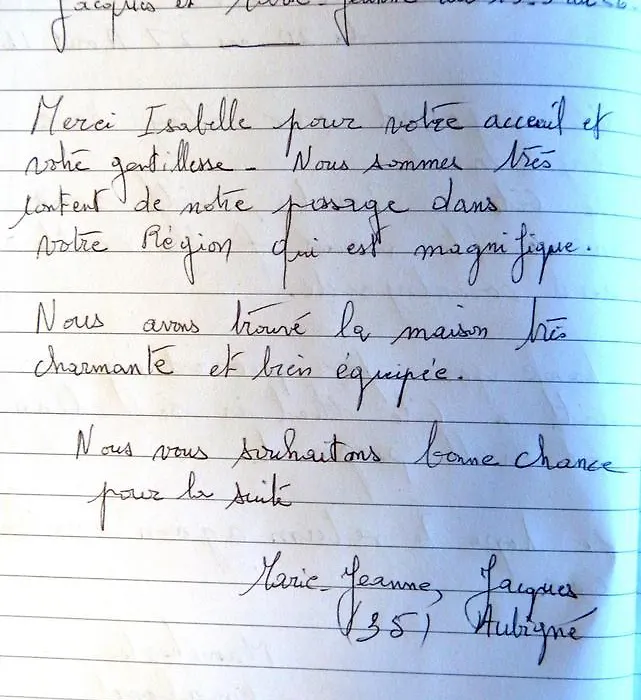 Jacques et Marie-Jeanne
Merci Isabelle pour votre acceuil et
votre gentillesse - Nous sommes très
content de notre passage dans
votre Région qui est magnifique.
Nous avons trouvé la maison très
charmante et bien équipée.
Nous vous souhaitons bonne chance
pour la suite
Marie-Jeanne, Jacques
(35) Aubigné